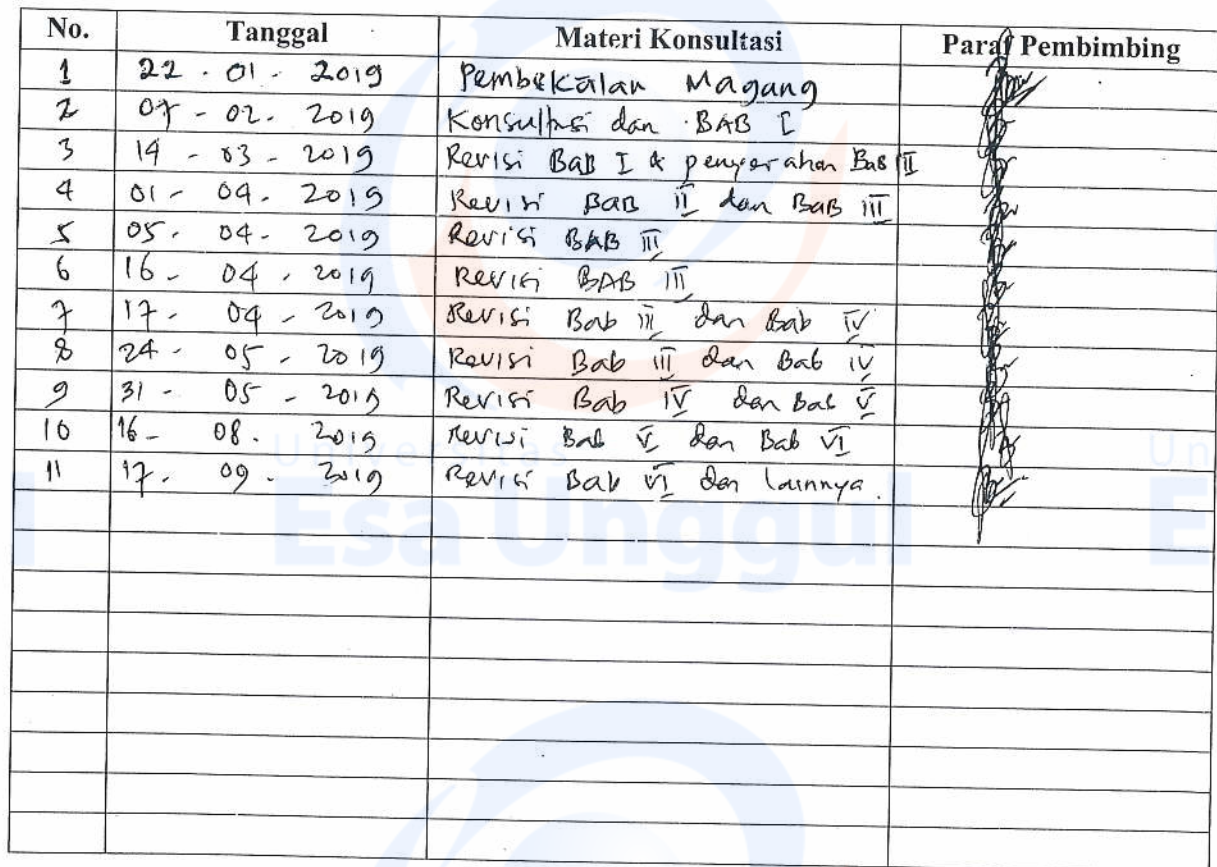 No. Tanggal Materi Konsultasi Paraf Pembimbing
1 22 - 01 - 2019 Pembekalan Magang
2 07 - 02 - 2019 Konsultasi dan BAB I
3 14 - 03 - 2019 Revisi BaB I & penyerahan BaB II
4 01 - 04 - 2019 Revisi BAB II dan BAB III
5 05 - 04 - 2019 Revisi BAB III
6 16 - 04 - 2019 Revisi BAB III
7 17 - 04 - 2019 Revisi Bab III dan Bab IV
8 24 - 05 - 2019 Revisi Bab III dan Bab IV
9 31 - 05 - 2019 Revisi Bab IV dan Bab V
10 16 - 08 - 2019 Revisi Bab V dan Bab VI
Universitas Un
11 17 - 09 - 2019 Revisi Bab VI dan lainnya.
l Esa Unggul E